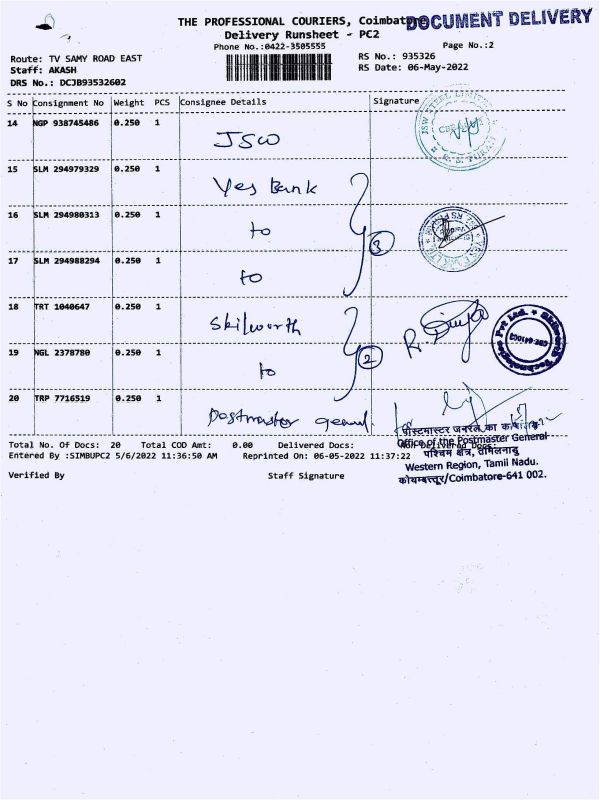 THE PROFESSIONAL COURIERS, Coimbatore
DOCUMENT DELIVERY
Delivery Runsheet - PC2
Phone No.:0422-3505555
Page No.:2
Route: TV SAMY ROAD EAST
RS No.: 935326
Staff: AKASH
RS Date: 06-May-2022
DRS No.: DCJB93532602
S No Consignment No Weight PCS Consignee Details Signature
14 NGP 938745486 0.250 1
JSW
15 SLM 294979329 0.250 1
Yes Bank
16 SLM 294980313 0.250 1
to
3
17 SLM 294988294 0.250 1
to
18 TRT 1040647 0.250 1
Skilworth
19 NGL 2378780 0.250 1
to
2
20 TRP 7716519 0.250 1
Postmaster genral.
पोस्टमास्टर जनरल का
Total No. Of Docs: 20 Total COD Amt: 0.00 Delivered Docs: Non-Delivered Docs:
Office of the Postmaster General
Entered By :SIMBUPC2 5/6/2022 11:36:50 AM Reprinted On: 06-05-2022 11:37:22
पश्चिम क्षेत्र, तमिलनाडु
Western Region, Tamil Nadu.
Verified By Staff Signature
कोयम्बत्तूर/Coimbatore-641 002.